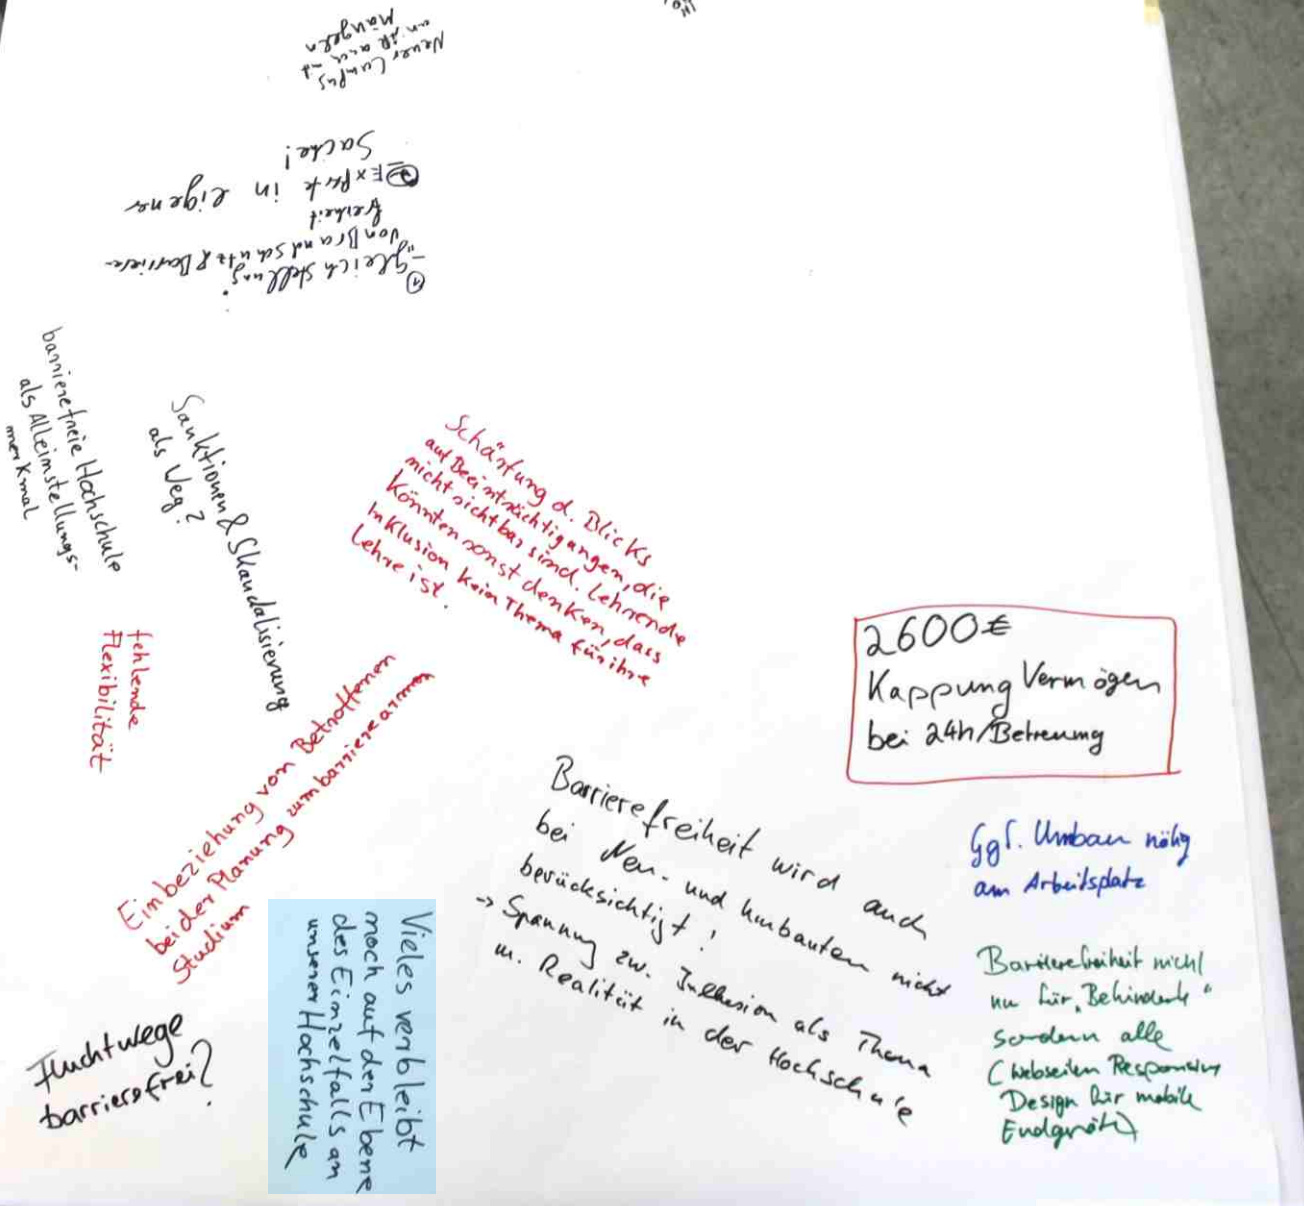 Neuer Campus
Mängeln
① "gleichstellung"
von Brandschutz & Barriere-
freiheit
② Experte in eigener
Sache!
barrierefreie Hochschule
als Alleinstellungs-
merkmal
Sanktionen & Skandalisierung
als Weg?
Schärfung d. Blicks
auf Beeinträchtigungen, die
nicht sichtbar sind. Lehrende
könnten sonst denken, dass
Inklusion kein Thema für ihre
Lehre ist.
fehlende
Flexibilität
Einbeziehung von Betroffenen
bei der Planung zum barrierearmen
Studium
2600€
Kappung Vermögen
bei 24h/Betreuung
Ggf. Umbau nötig
am Arbeitsplatz
Barrierefreiheit wird auch
bei Neu- und Umbauten nicht
berücksichtigt!
→ Spannung zw. Inklusion als Thema
u. Realität in der Hochschule
Barrierefreiheit nicht
nur für "Behinderte"
sondern alle
(Webseiten Responsive
Design für mobile
Endgeräte)
Vieles verbleibt
noch auf der Ebene
des Einzelfalls an
unserer Hochschule
Fluchtwege
barrierefrei?